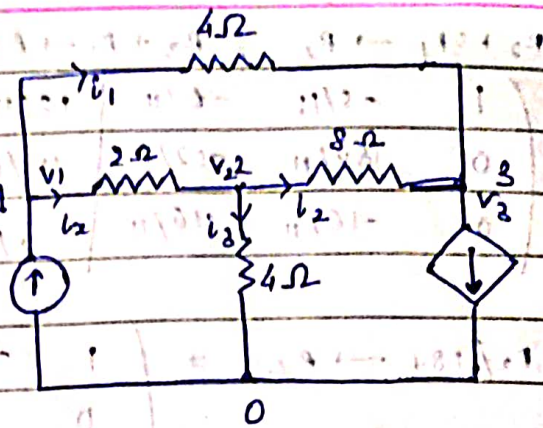 4Ω
i₁
v₁ 2Ω v₂ 2 8Ω 3
iₓ i₃ i₂ v₃
4Ω
0